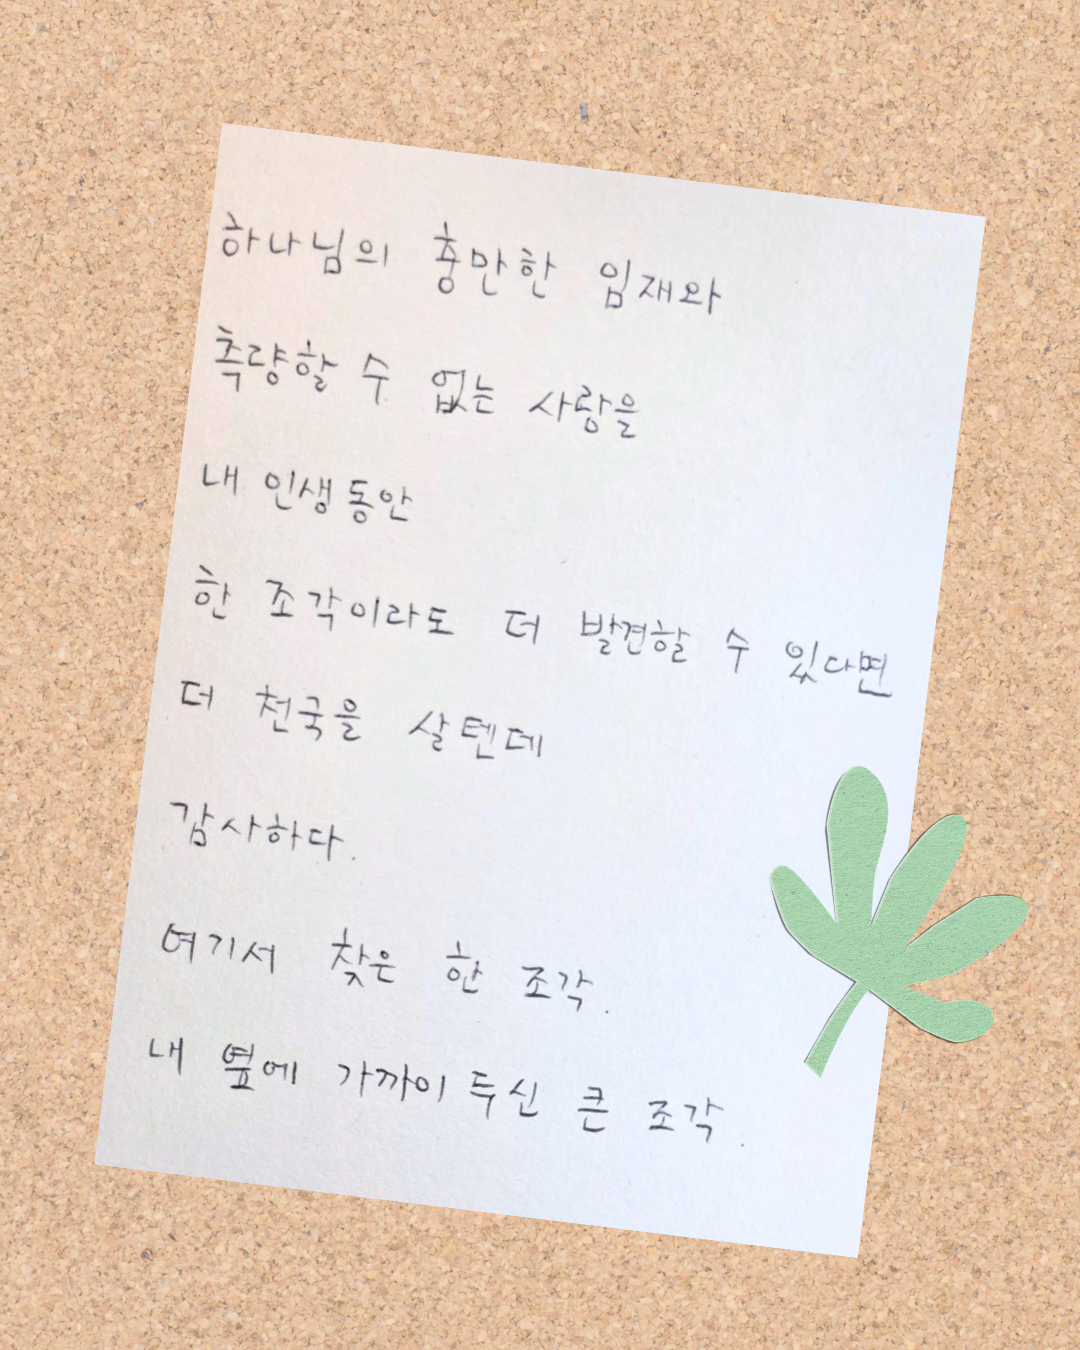 하나님의 충만한 임재와
측량할 수 없는 사랑을
내 인생 동안
한 조각이라도 더 발견할 수 있다면
더 천국을 살텐데
감사하다.
여기서 찾은 한 조각.
내 옆에 가까이 두신 큰 조각.